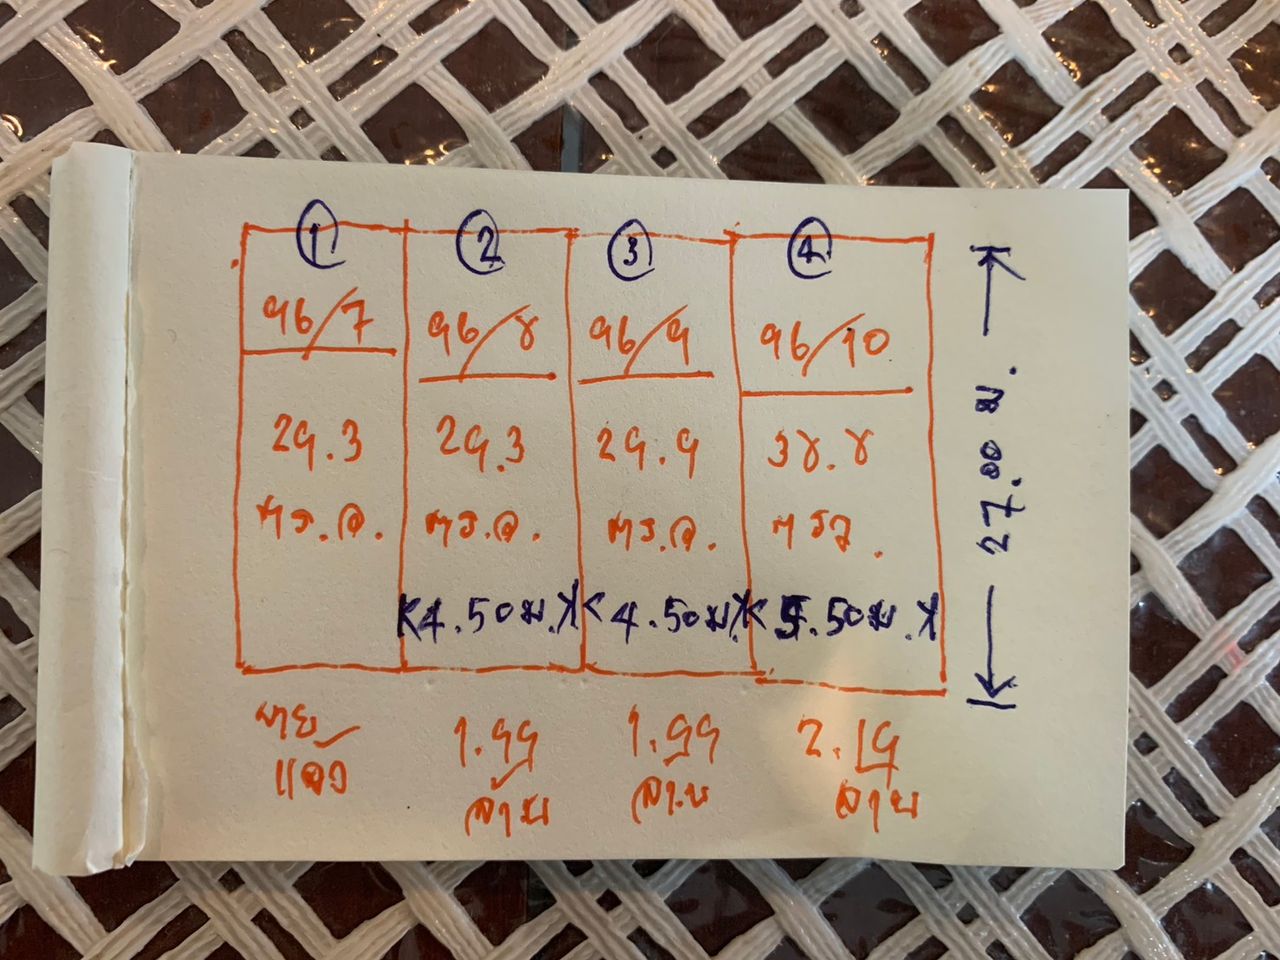 1 2 3 4
96/7 96/8 96/9 96/10
29.3 29.3 29.9 38.8
ตร.ว. ตร.ว. ตร.ว. ตรว.
4.50ม. 4.50ม. 5.50ม.
27.00 ม.
ขาย 1.99 1.99 2.19
แล้ว ล้าน ล้าน ล้าน